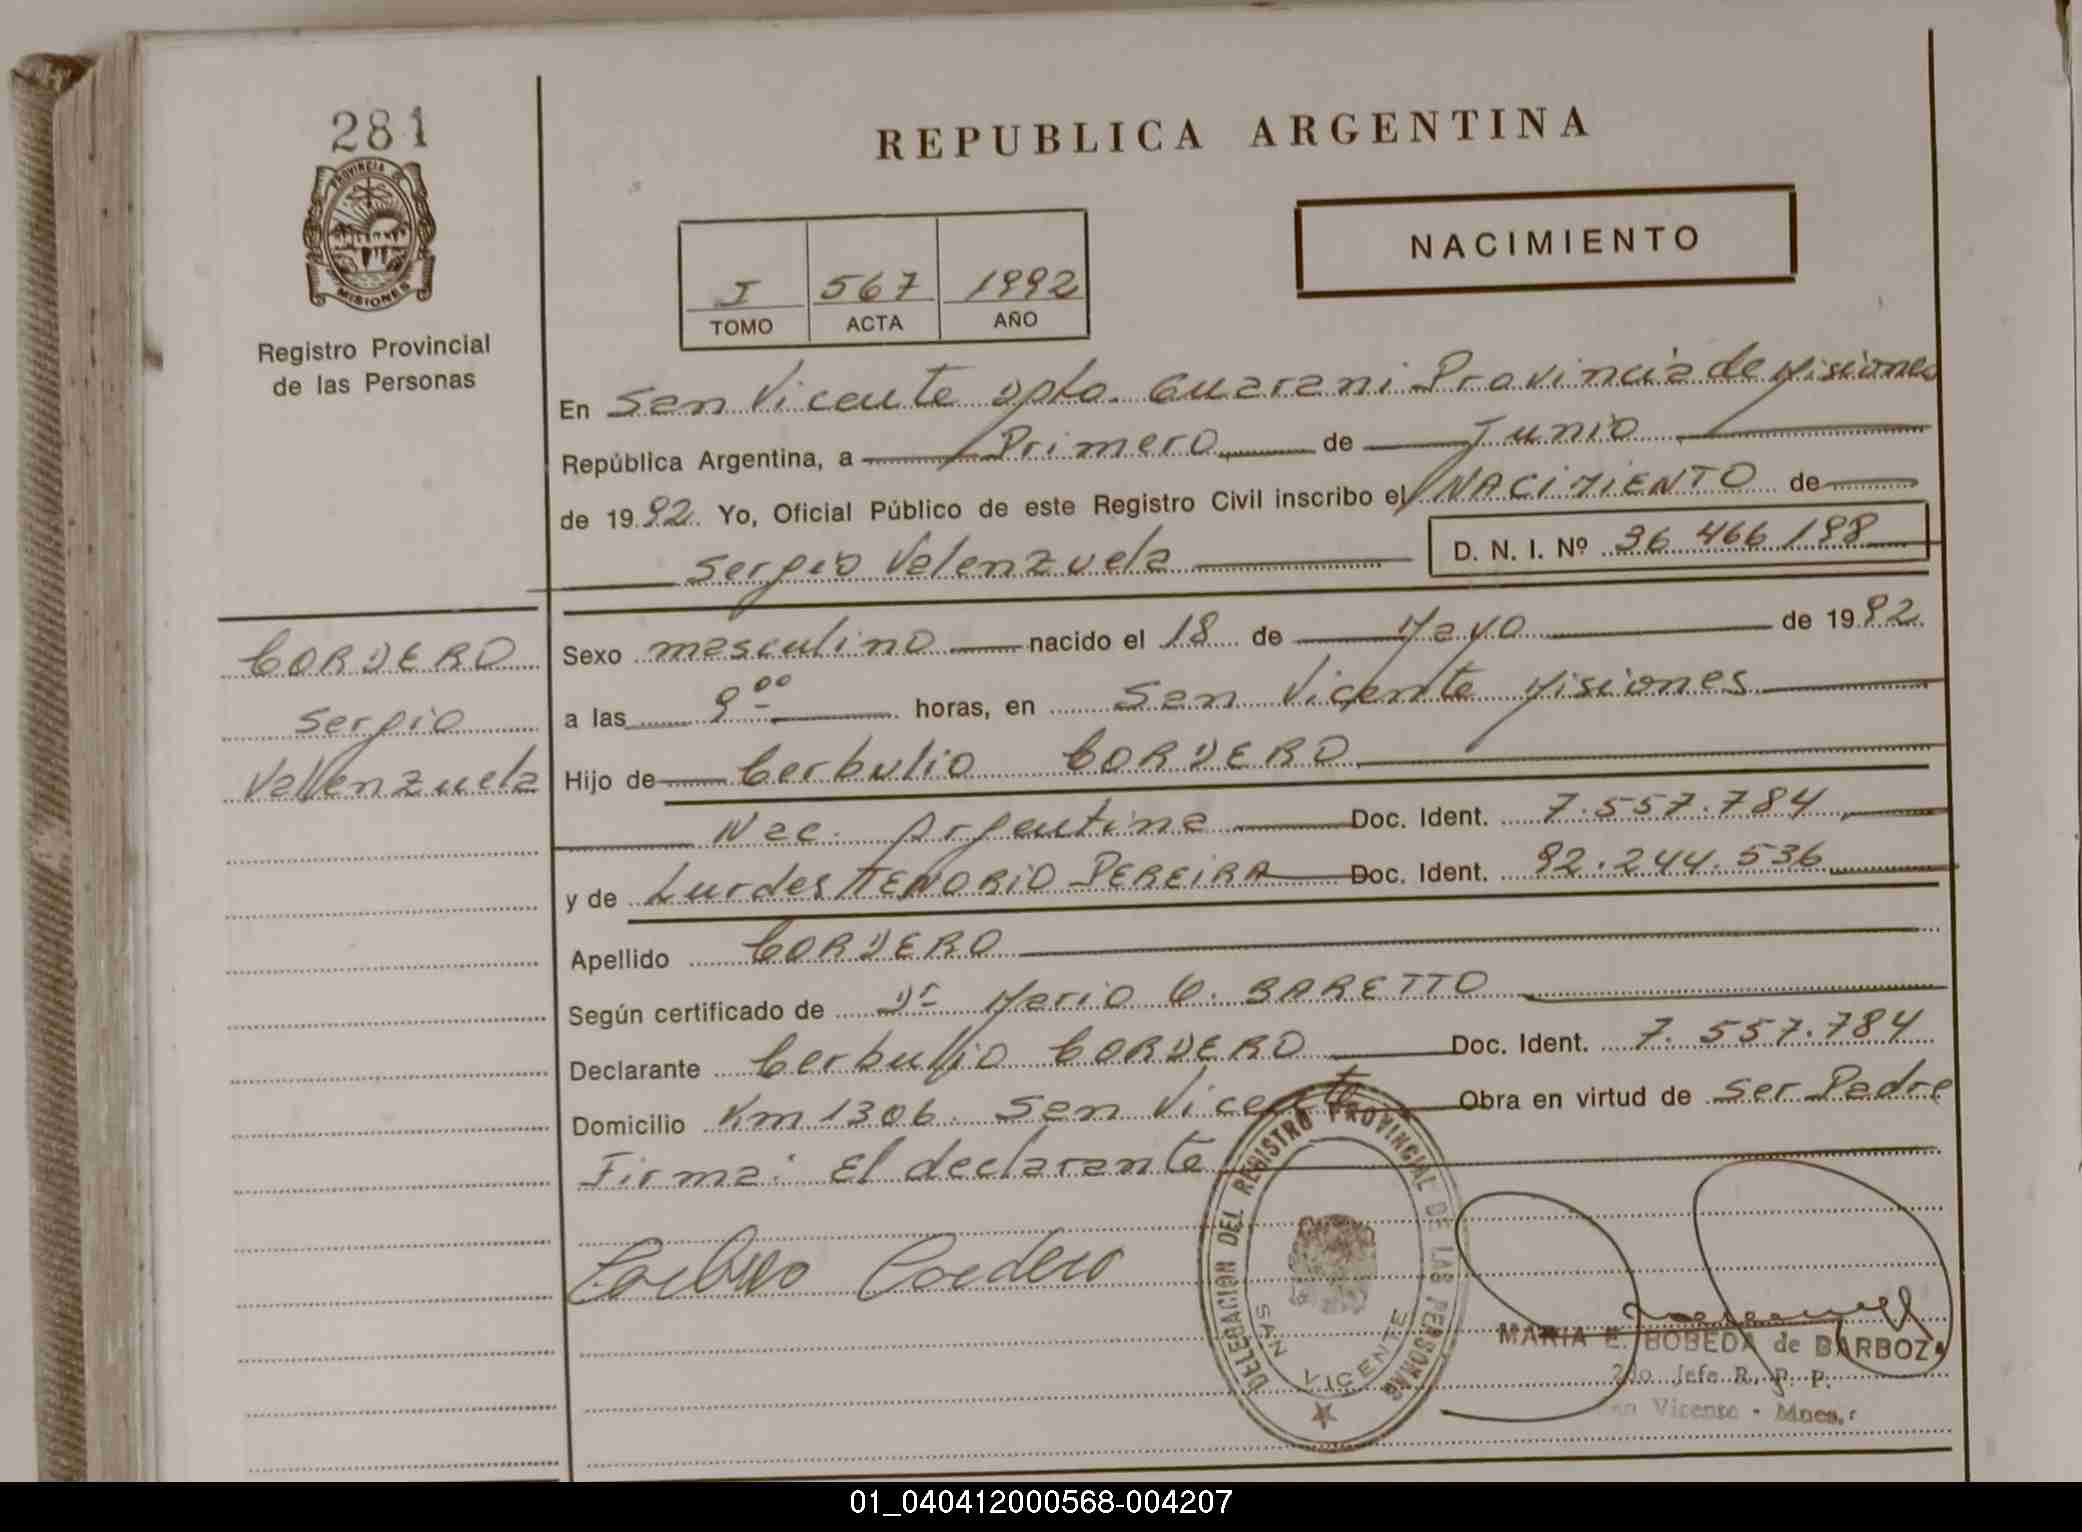 281
PROVINCIA DE
MISIONES
Registro Provincial
de las Personas
REPUBLICA ARGENTINA
NACIMIENTO
I 567 1992
TOMO ACTA AÑO
En San Vicente Dpto. Guarani Provincia de Misiones
República Argentina, a Primero de Junio
de 1992. Yo, Oficial Público de este Registro Civil inscribo el NACIMIENTO de
Sergio Valenzuela D. N. I. Nº 36 466 198
CORDERO
Sergio
Valenzuela
Sexo masculino nacido el 18 de Mayo de 1992
a las 9 00 horas, en San Vicente Misiones
Hijo de Cerbulio CORDERO
Nac. Argentina Doc. Ident. 7.557.784
y de Lurdes TENORIO PEREIRA Doc. Ident. 92.244.536
Apellido CORDERO
Según certificado de Dr Mario O. BARETTO
Declarante Cerbulio CORDERO Doc. Ident. 7.557.784
Domicilio Km 1306. San Vicente Obra en virtud de ser Padre
Firma: El declarante
Cordero
DELEGACION DEL REGISTRO PROVINCIAL DE LAS PERSONAS
SAN VICENTE
MARIA E. BOBEDA de BARBOZA
2do Jefe R. P. P.
San Vicente - Mnes.
01_040412000568-004207